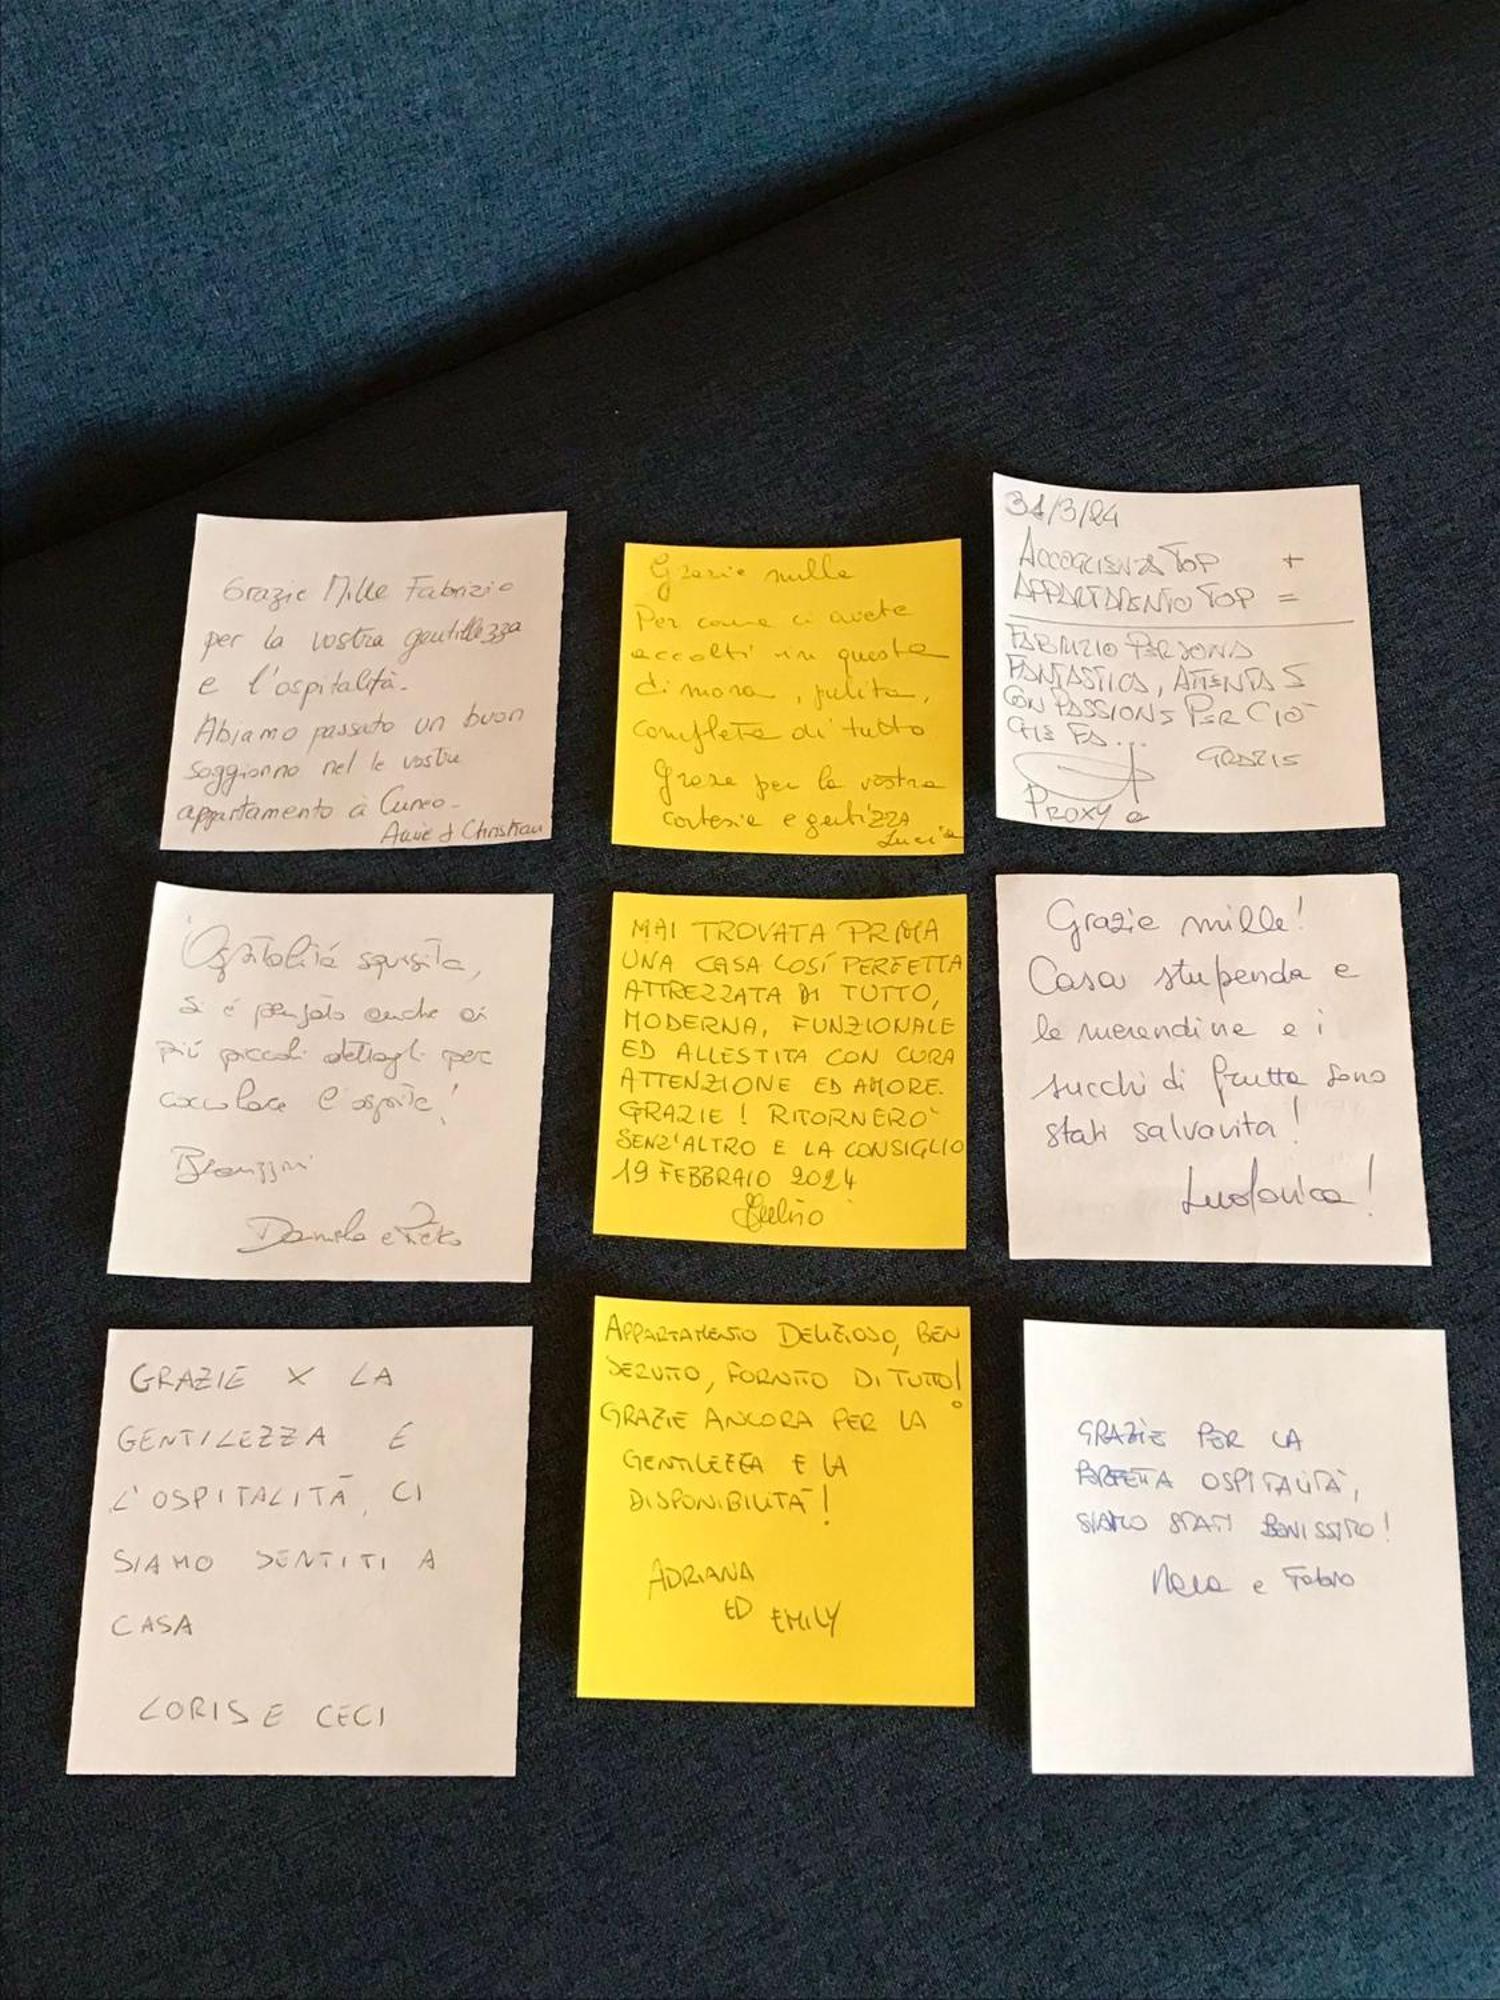 Grazie Mille Fabrizio
per la vostra gentillezza
e l'ospitalità.
Abiamo passato un buon
soggiorno nel le vostre
appartamento à Cuneo.
Annie & Christian
Grazie mille
Per come ci avete
accolti in questa
dimora, pulita,
completa di tutto
Graze per la vostra
cortesia e gentizza
Lucia
31/3/24
ACCOGLIENZA TOP +
APPARTAMENTO TOP =
FABRIZIO PERSONA
FANTASTICA, ATTENTA E
CON PASSIONE PER CIÒ
CHE FA...
GRAZIE
PROXY
Ospitalità squisita,
si é pensato anche ai
più piccoli dettagli per
coccolare l'ospite!
Bravissimi
Daniela e
MAI TROVATA PRIMA
UNA CASA COSÍ PERFETTA
ATTREZZATA DI TUTTO,
MODERNA, FUNZIONALE
ED ALLESTITA CON CURA
ATTENZIONE ED AMORE.
GRAZIE! RITORNERO'
SENZ'ALTRO E LA CONSIGLIO
19 FEBBRAIO 2024
Grazie mille!
Casa stupenda e
le merendine e i
succhi di frutta sono
stati salvavita!
Ludovica!
GRAZIE X LA
GENTILEZZA E
L'OSPITALITÀ, CI
SIAMO SENTITI A
CASA
LORIS E CECI
APPARTAMENTO DELIZIOSO, BEN
SERVITO, FORNITO DI TUTTO!
GRAZIE ANCORA PER LA
GENTILEZZA E LA
DISPONIBILITÀ!
ADRIANA
ED EMILY
GRAZIE PER LA
PERFETTA OSPITALITÀ,
SIAMO STATI BENISSIMO!
e Fabio